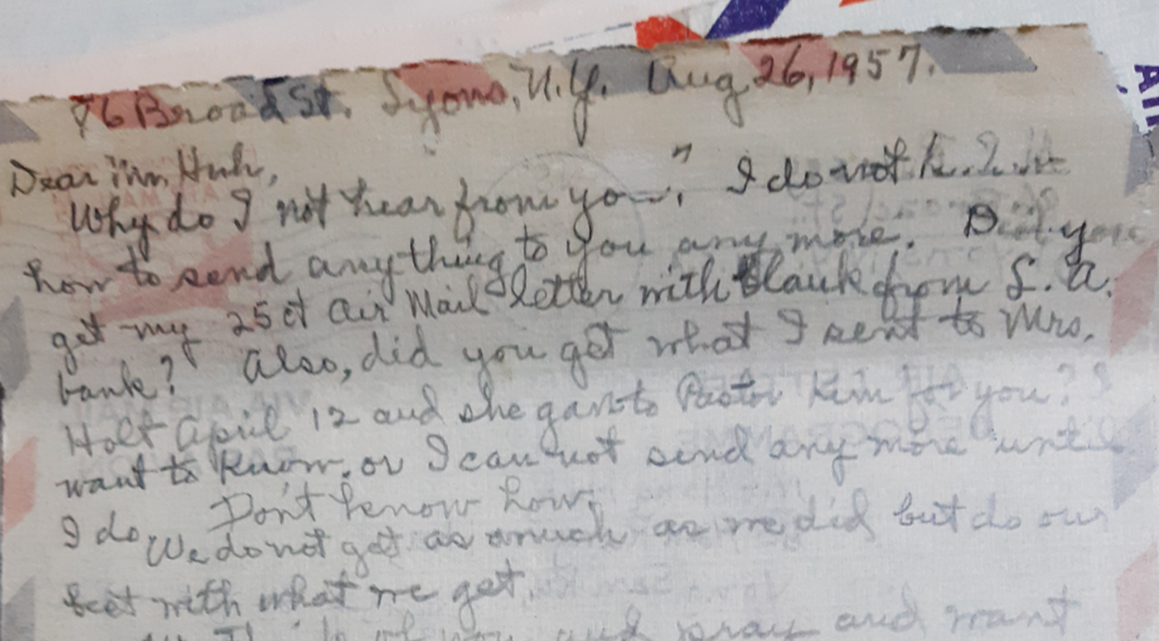 76 Broad St. Lyons, N.Y. Aug 26, 1957.
Dear Mr. Huh,
Why do I not hear from you? I do not
how to send anything to you any more. Did you
get my 25 ct Air Mail letter with blank from L. A.
bank? Also, did you get what I sent to Mrs.
Holt April 12 and she gave to Pastor Kim for you? I
want to know, or I can not send any more until
I do. Don't know how.
We do not get as much as we did but do our
best with what we get.
of you and pray and want